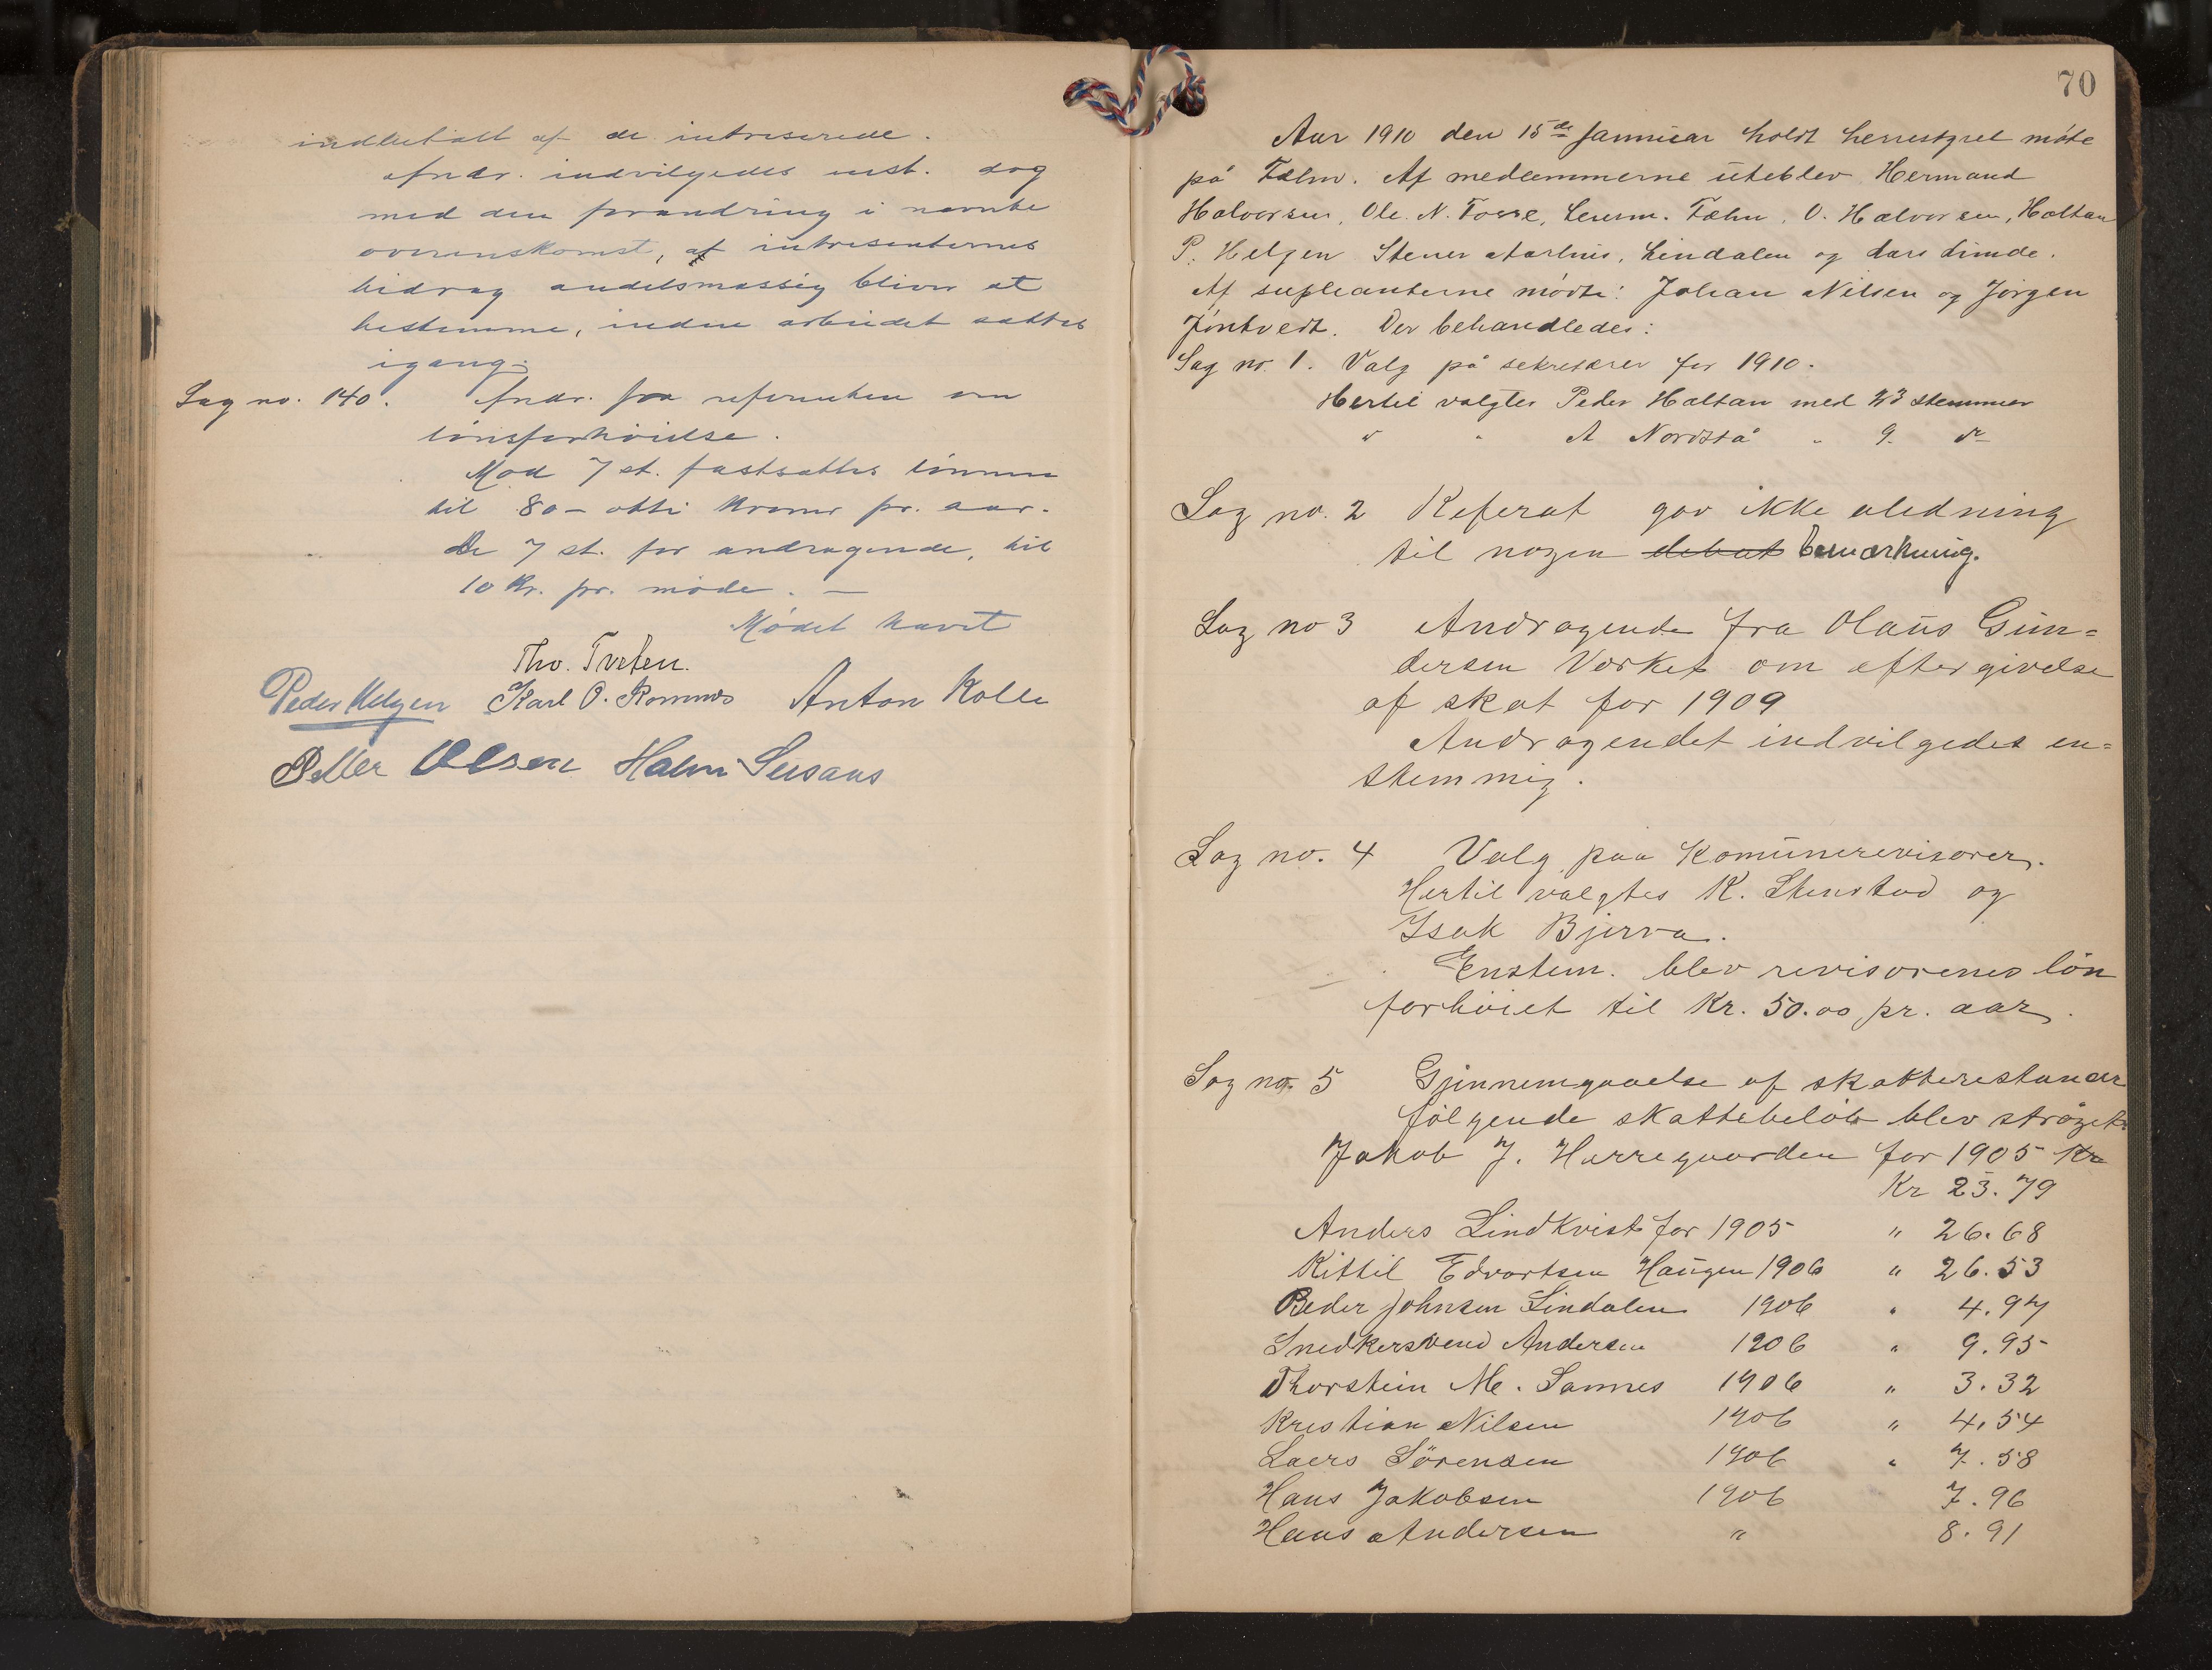 indbetalt af de intreserede.
Andr. indvilgedes enst. dog
med den forandring i nævnte
overenskomst, at intresenternes
bidrag andelsmæssig bliver at
bestemme, inden arbeidet sættes
igang.
Sag no. 140. Andr. fra referenten om
lønsforhøielse.
Mod 7 st. fastsattes lønnen
til 80 - otti kroner pr. aar.
De 7 st. for andragende, til
10 Kr. pr. møde. —
Mødet hævet
Tho. Tveten.
Peder Helgen Karl O. Romnes Anton Kolle
Petter Olsen Halvor
70
Aar 1910 den 15de Januar holdt herrestyret møte
på Fælm. Af medlemmerne uteblev Hermand
Halvorsen, Ole. N. Fosse, Lensm. Fælm, O. Halvorsen, Holtan
P. Helgen Stener Lindalen og Lars
Af supleanterne møtte: Johan Nilsen og Jørgen
Jøntvedt. Der behandledes:
Sag no. 1. Valg på sekretærer for 1910.
Hertil valgtes Peder Holtan med 23 stemmer
" " A Nordstå " 9 do
Sag no. 2 Referat gav ikke aledning
til nogen debat bemærkning.
Sag no 3 Andragende fra Olaus Gun=
dersen Værket om eftergivelse
af skat for 1909
Andragendet indvilgedes en=
stemmig.
Sag no. 4 Valg paa Komunerevisorer.
Hertil valgtes K. Stenstad og
Isak Bjerva.
Enstem. blev revisorenes løn
forhøiet til Kr. 50.00 pr. aar.
Sag no. 5 Gjennemgaaelse af skatterestancer
følgende skattebeløb blev strøget:
Jakob J. Herregaarden for 1905 Kr
Kr 23.79
Anders Lindkvist for 1905 " 26.68
Kittil Edvartsen Haugen 1906 " 26.53
Peder Johnsen Lindalen 1906 " 4.97
Snedkersvend Andersen 1906 " 9.95
Thorstein M. Sannes 1906 " 3.32
Kristian Nilsen 1906 " 4.54
Laers Sørensen 1906 " 7.58
Hans Jakobsen 1906 7.96
Hans Andersen " 8.91